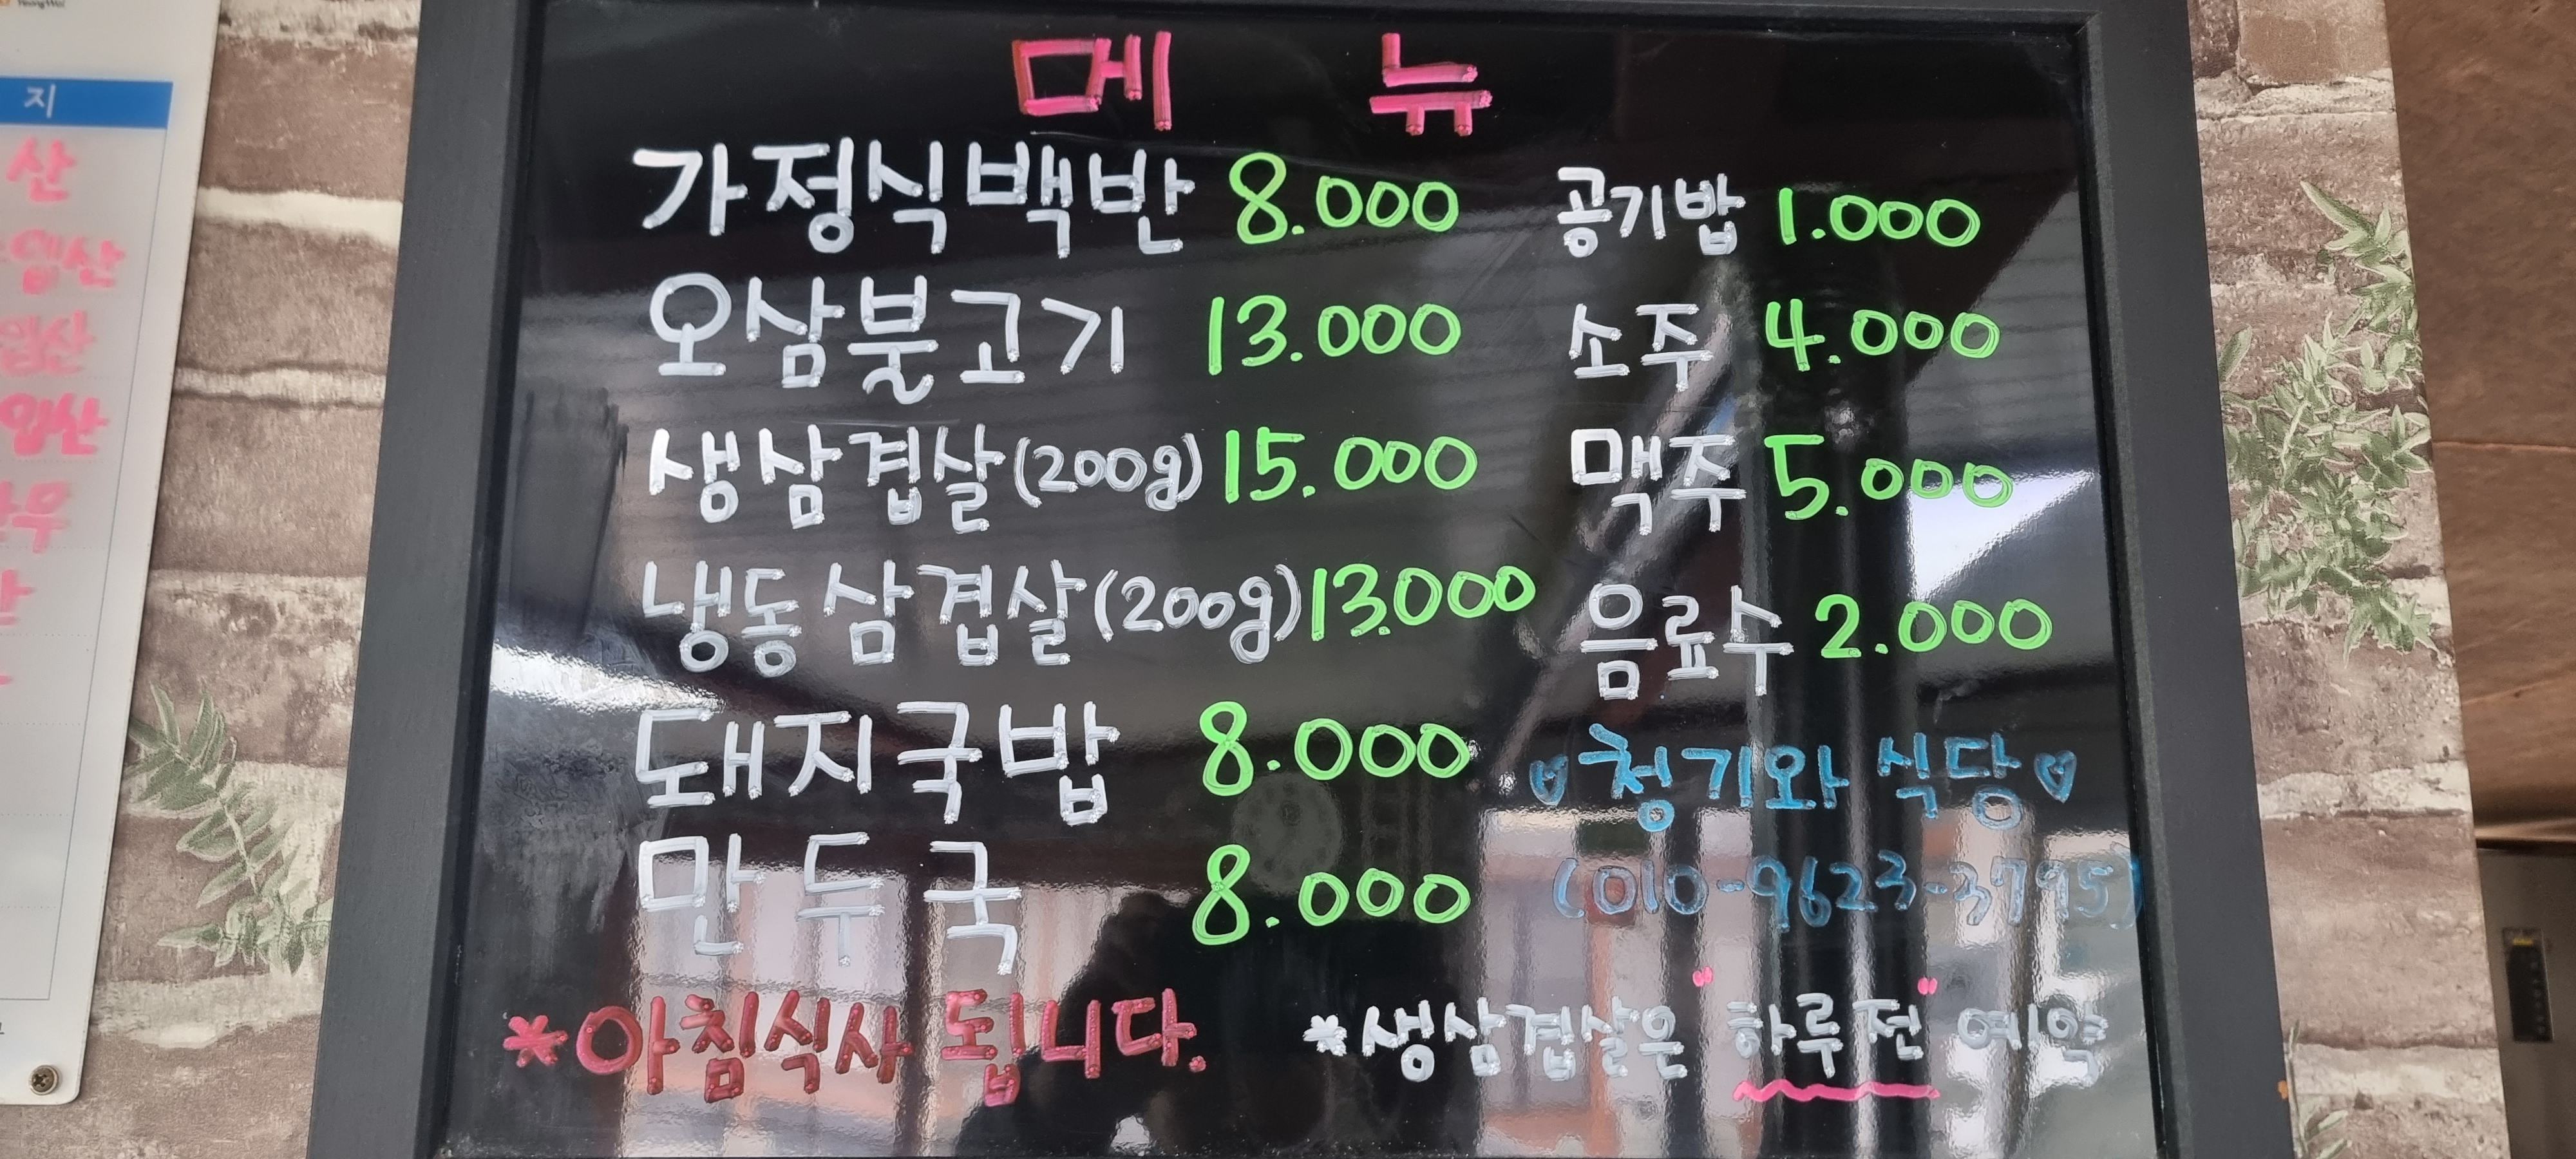 지
산
메 뉴
가정식백반 8.000
오삼불고기 13.000
생삼겹살(200g) 15.000
냉동삼겹살(200g) 13.000
돼지국밥 8.000
만두국 8.000
*아침식사 됩니다.
공기밥 1.000
소주 4.000
맥주 5.000
음료수 2.000
♡청기와 식당♡
(010-9623-3795)
*생삼겹살은 "하루전" 예약